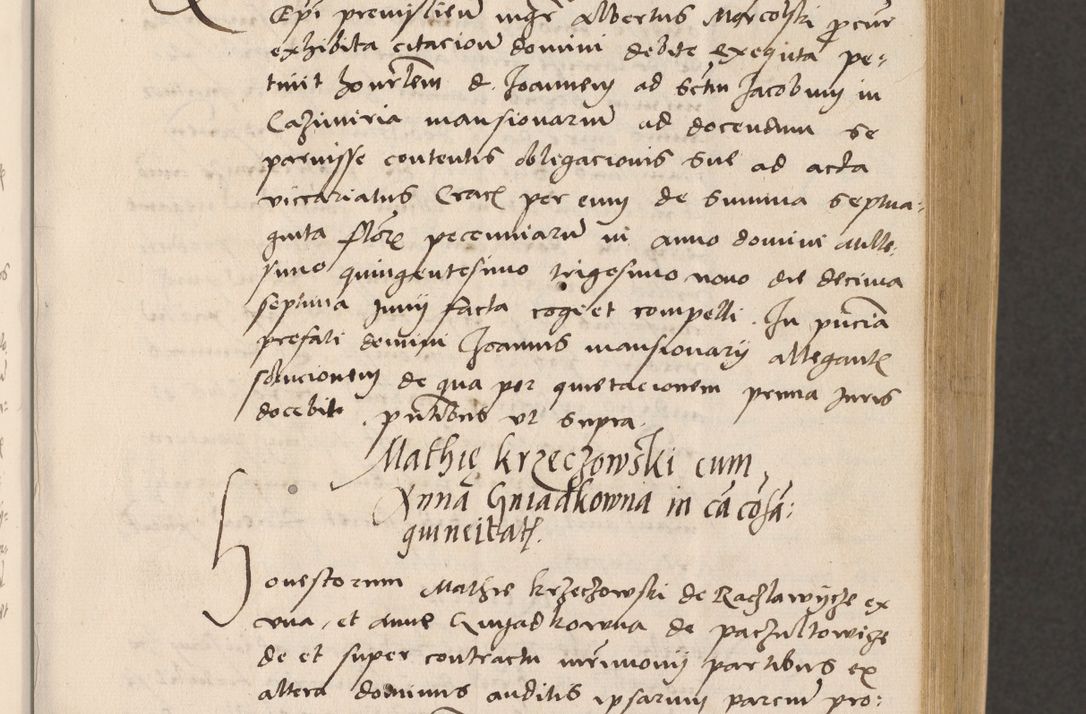 Epi premislien mgr Albertus Morcolski procur
exhibita citacion domini debite exequuta pe-
tiuit honrlem d. Joannem ad sctm Jacobum in
Cazimiria mansionarium ad docendum se
paruisse contentis obligacionis sue ad acta
viccariatus Crac per eum de summa septua-
ginta flore pecuniarum in anno domini mille-
simo quingentesimo trigesimo nono die decima
septima Junii facta cogi et compelli. In pncia
prefati domini Joannis mansionarii allegante
solucionem de qua per quietacionem prima Juris
docebit. pntibus vt supra.
Mathię Krzeczowski cum
Anna Gniadkowna in ca cosa-
guineitate.
Honestorum Mathie Krzeczowski de Raczlawycze ex
vna, et Anne Gnyadkowna de Paczultowicze
de et super contractu mrimonii partibus ex
altera dominus auditis ipsarum parcium pro-